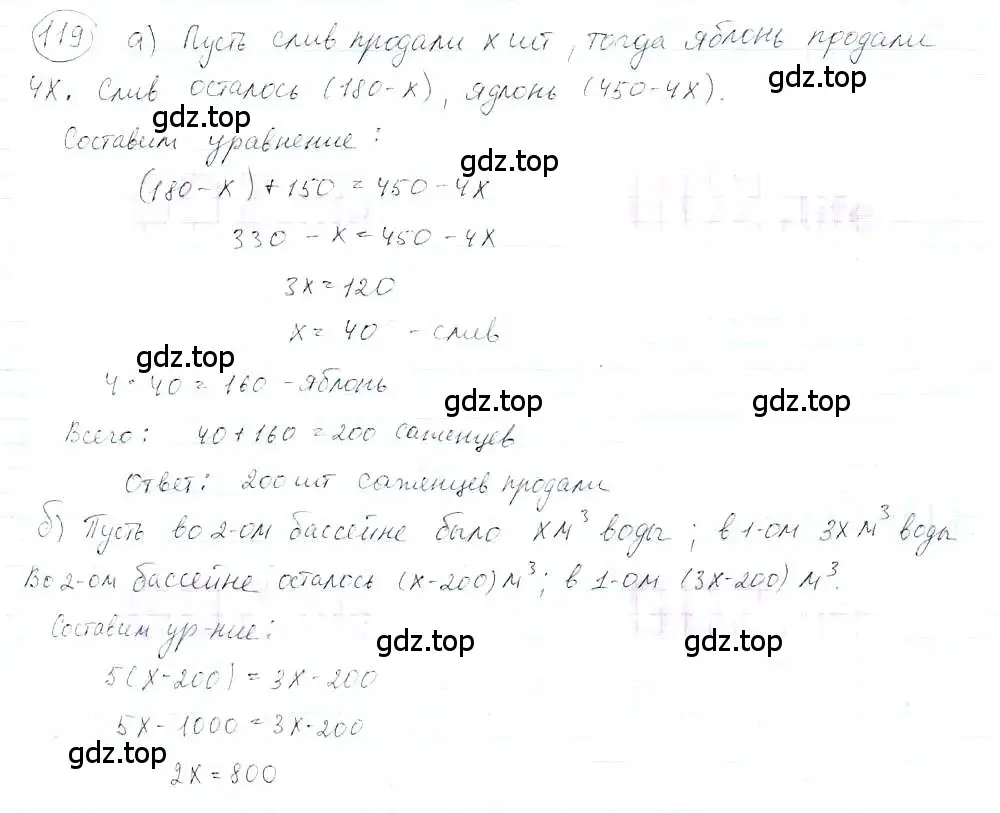 119 а) Пусть слив продали х шт, тогда яблонь продали
4х. Слив осталось (180-х), ядлонь (450-4х).
gdz.top
gdz.top
Составим уравнение:
gdz.top
gdz.top
(180-х)+150=450-4х
330-х=450-4х
3х=120
х=40 - слив
gdz.top
4·40=160 - яблонь
gdz.top
gdz.top
Всего: 40+160=200 саженцев
Ответ: 200 шт саженцев продали
б) Пусть во 2-ом бассейне было х м³ воды; в 1-ом 3х м³ воды
Во 2-ом бассейне осталось (х-200) м³; в 1-ом (3х-200) м³.
Составим ур-ние:
gdz.top
gdz.top
5(х-200)=3х-200
5х-1000=3х-200
gdz.top
2х=800